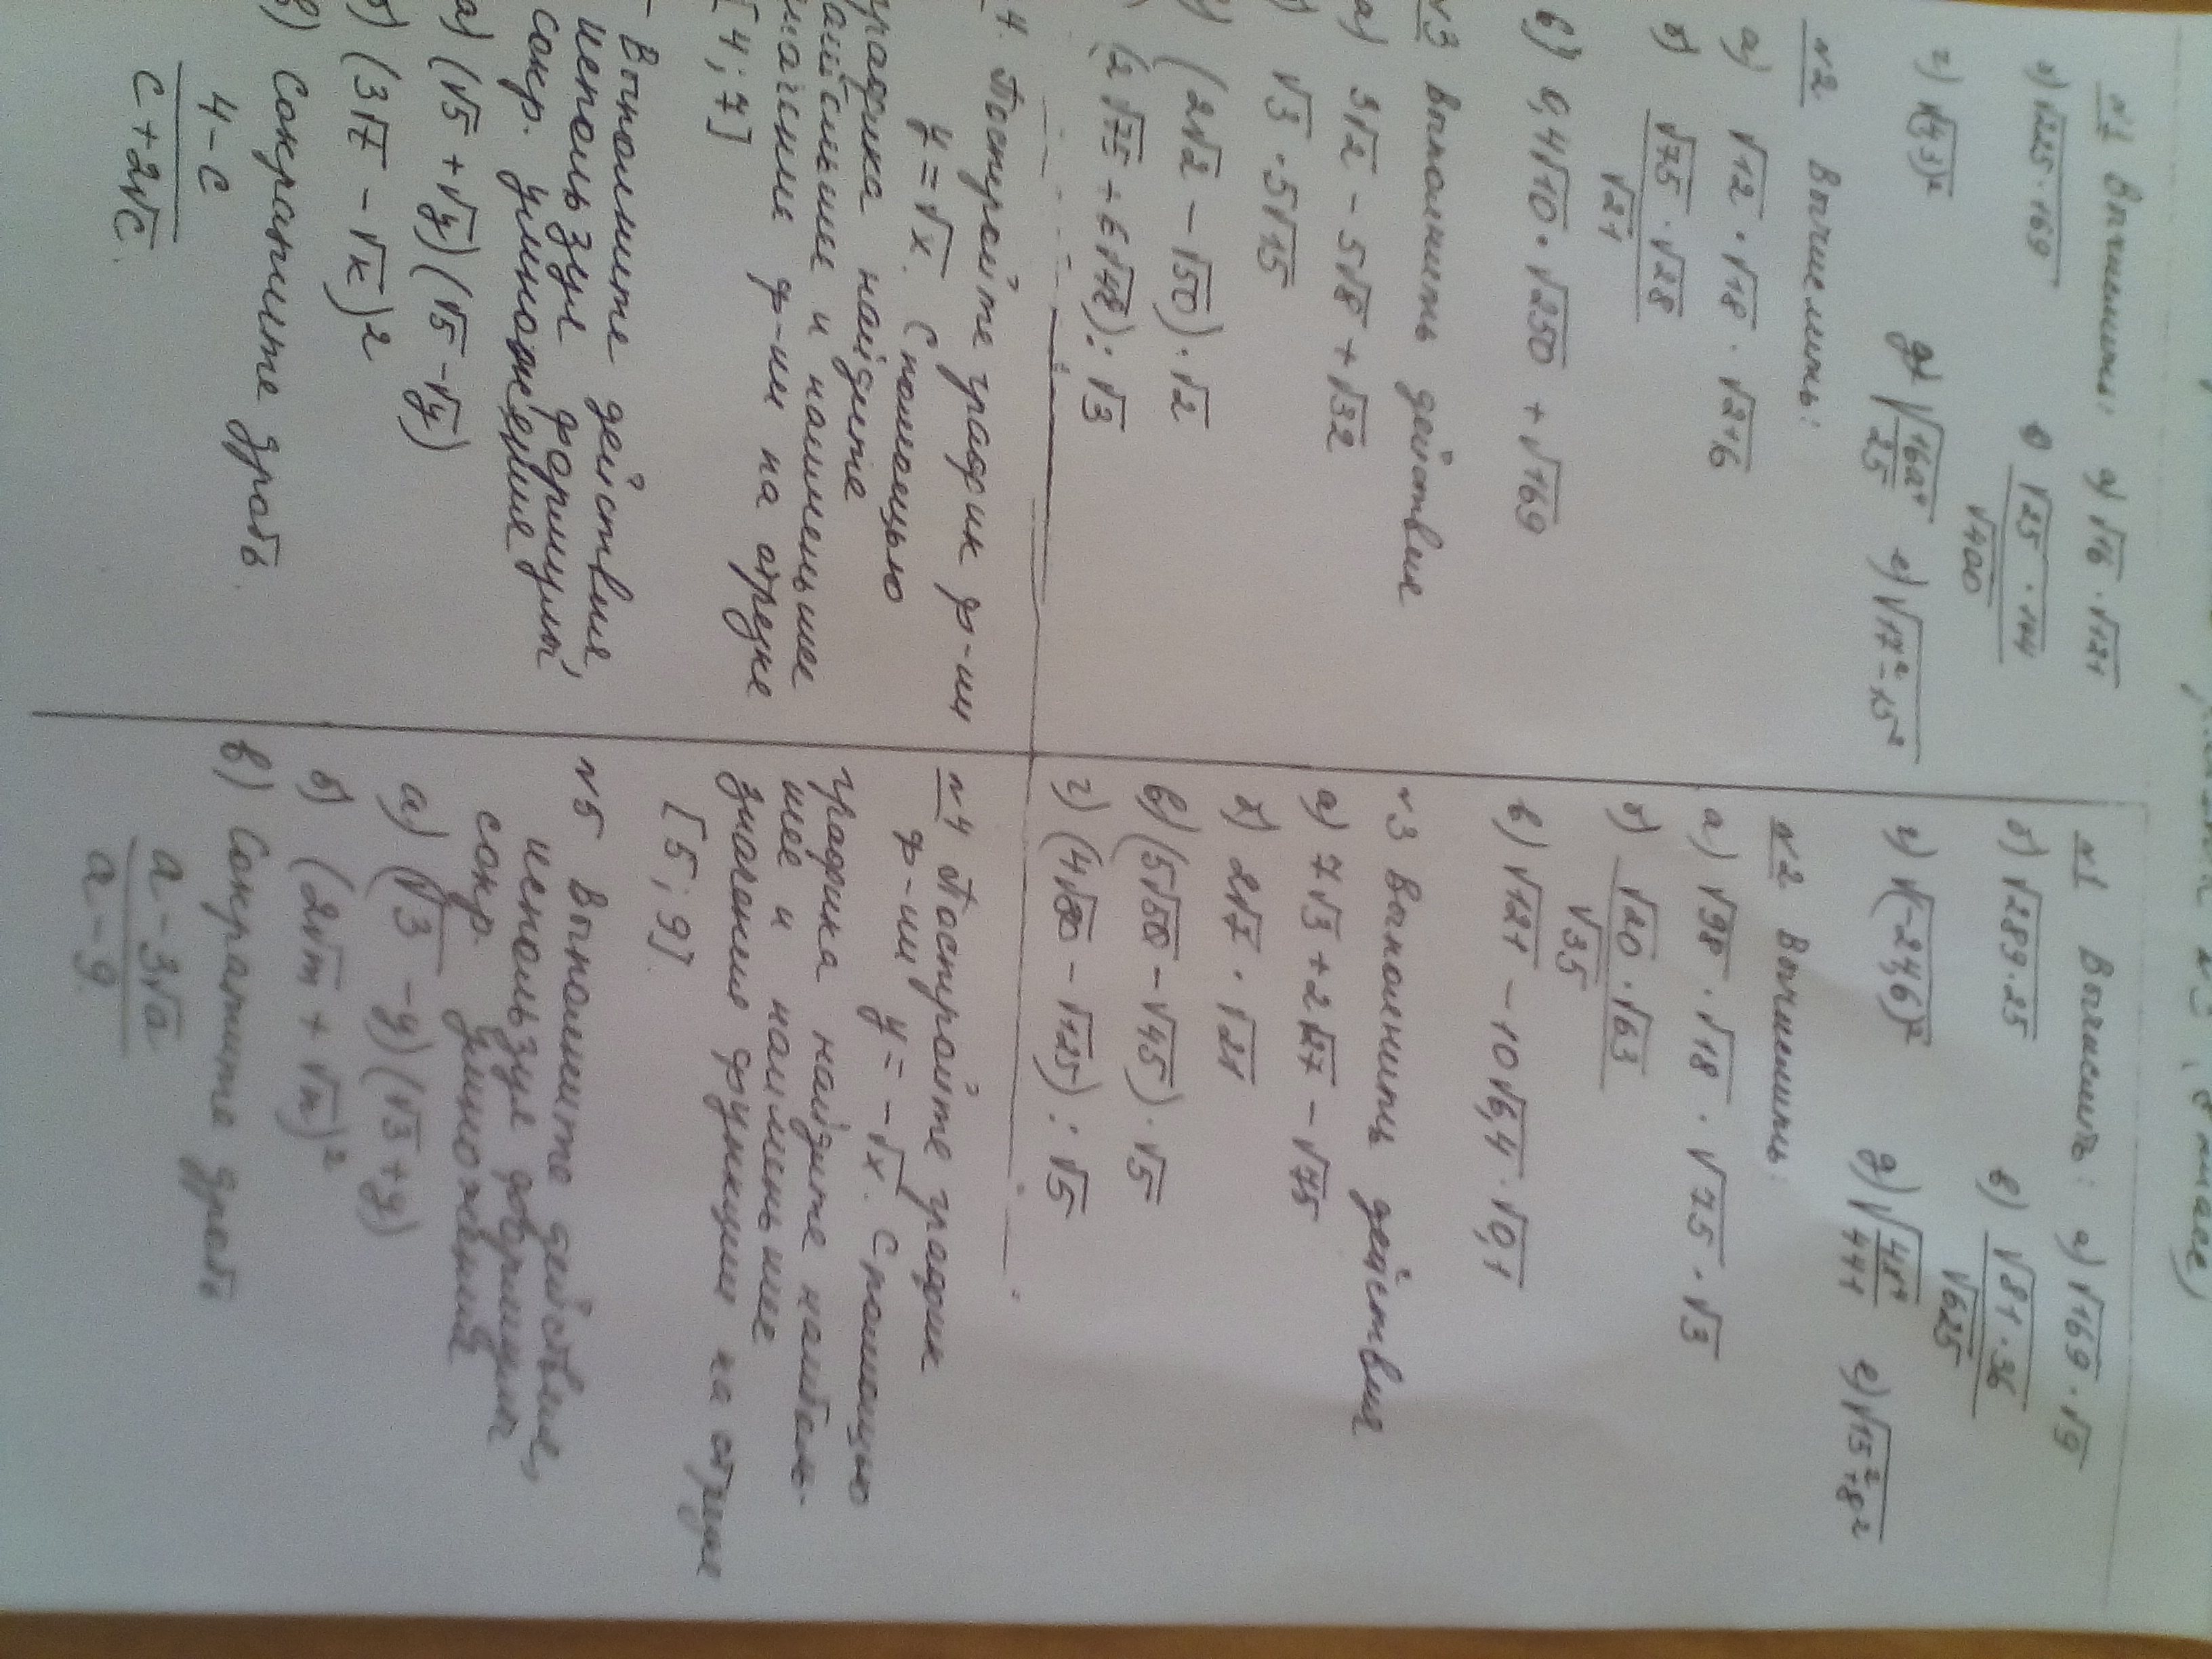 №1 Вычислить: а) √16 · √121
б) √225·169 в) √25 · 144
√400
г) √(4,3)² д) √162⁴ е) √17²-15²
25
№2 Вычислить:
а) √12 · √18 · √216
б) √75 · √28
√21
в) 0,4√10 · √250 + √169
№3 Выполнить действия
а) 3√2 - 5√8 + √32
√3 · 5√15
(2√2 - √50) · √2
(2√75 + 6√48) : √3
4. Постройте график ф-ии
y = √x. С помощью
графика найдите
наименьшее
значение ф-ии на отрезке
[4; 7]
Выполните действия,
используя формулы
сокр. умножения
а) (√5 + √y)(√5 - √y)
б) (3√7 - √к)²
в) Сократите дробь.
4-c
c+2√c.
№1 Вычислить: а) √169 · √9
б) √289·25 в) √81·36
√625
г) √(-2,46)² д) √48⁴ е) √15²+8²
441
№2 Вычислить:
а) √98 · √18 · √75 · √3
б) √20 · √63
√35
в) √121 - 10√6,4 · √0,1
№3 Выполнить действия
а) 7√3 + 2√27 - √75
б) 2√7 · √21
в) (5√50 - √45) · √5
г) (4√80 - √125) : √5
№4 Постройте график
ф-ии y = -√x. С помощью
графика найдите наиболь-
шее и наименьшие
значения функции на отрезке
[5; 9].
№5 Выполните действия,
используя формулы
сокр. умножения
а) (√3 - y)(√3 + y)
б) (2√m + √n)²
в) Сократите дробь
a - 3√a
a - 9.